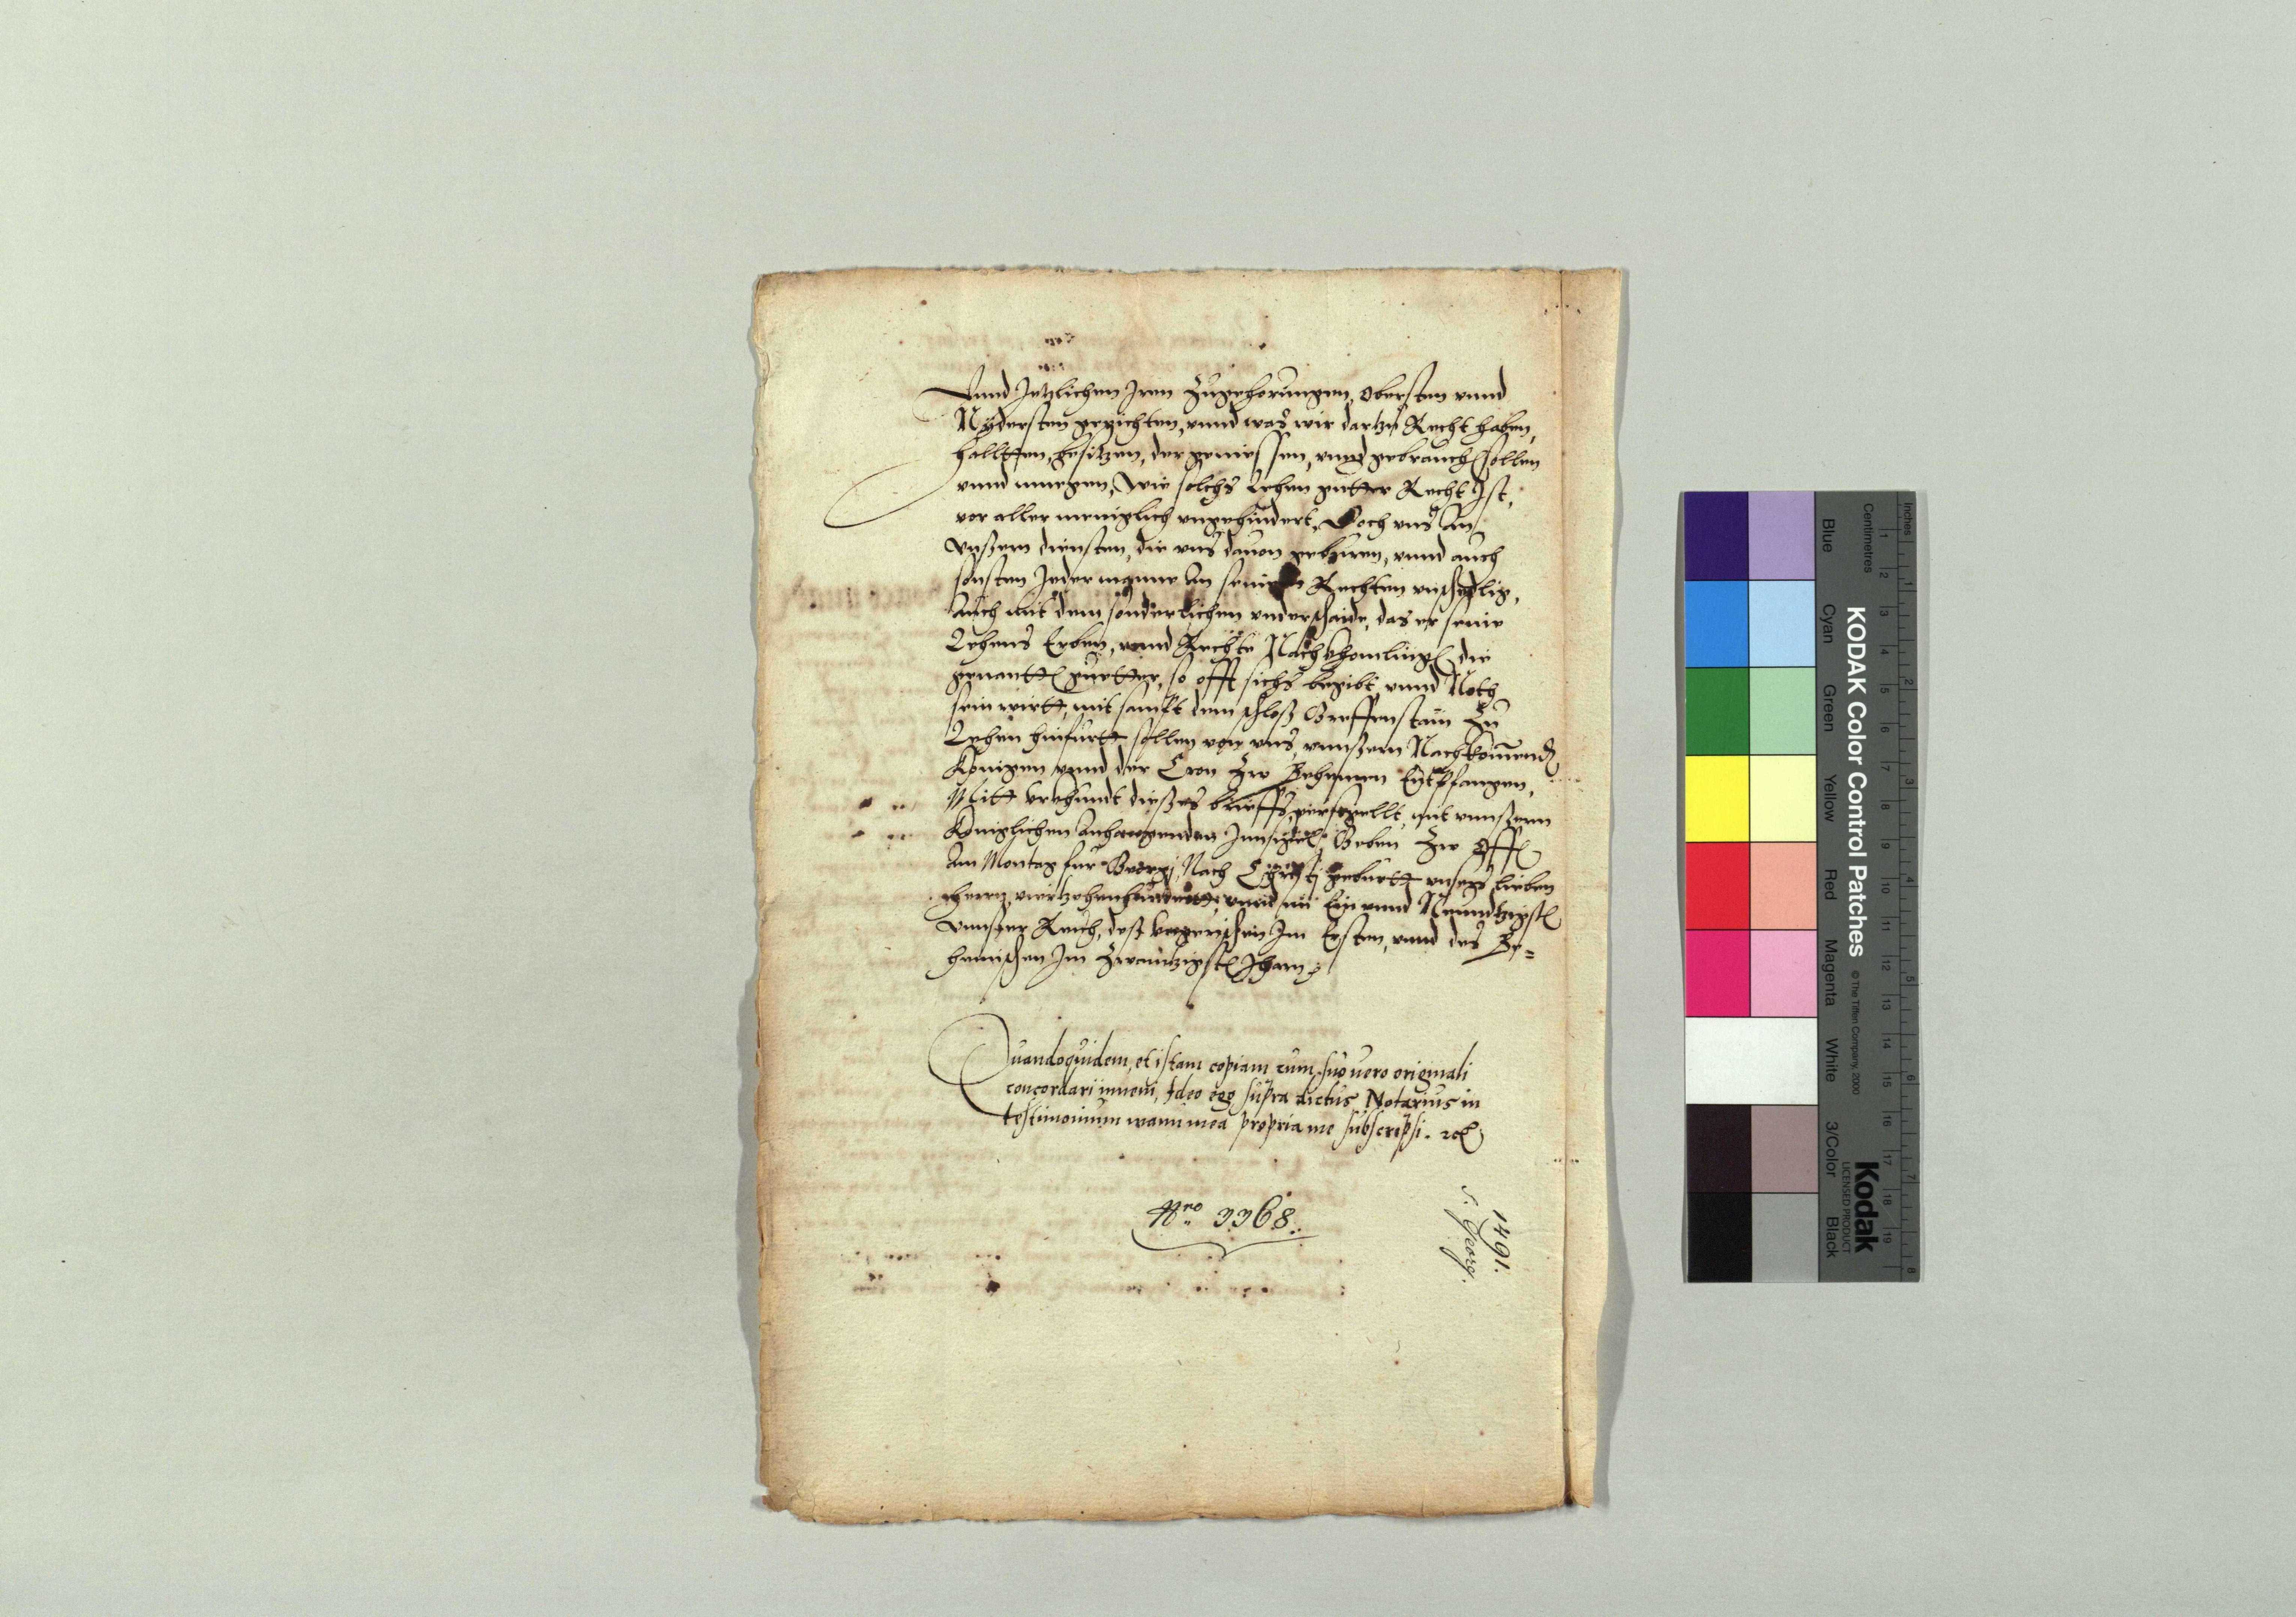 Vnnd Jetzlichen Jren Zugehorungen, obersten vnnd
Nydersten gerichten, vnnd was wir dartzu Recht haben,
halltten, besitzen, der geniessen, vnnd gebrauch sollen
vnnd muegen, Wie solchs Lehen guetter Recht Jst,
vor aller meniglich vngehindert, Doch vns An
Vnßern diensten, die vns dauon geburen, vnnd auch
sonsten Jeder manne An seinen Rechten vnschedlig,
Auch mit dem sonderlichen vnderschaide, das er seine
Lehens Erben, vnnd Rechte Nachkhomling die
genantt guetter, so offt sichs begibt vnnd Noth
sein wirtt, mit sampt dem schloß Greffenstain Zu
Lehen hinfurtt sollen von vns, vnnßern Nachkommend
Königen vnnd der Cron Zw Behemen Entpfangen,
Mitt vrkundt dießes brieffs, versigellt mit vnnßerm
Koniglichen Anhangenden Jnnsigel, Geben Zw Offen
Am Montag fur Georgj, Nach Christj geburtt vnsers lieben
herrn, viertzehenhundertt, vnnd im Ein vnnd Neundtzigst
Vnnßer Reich, deß Vngerischen Jm Ersten, vnnd des Be=
hemischen Jm Zwentzigst Jharn
Quandoquidem, et istam copiam cum suo uero originali
concordari inueni, Ideo ego supra dictus Notarius in
testimonium manu mea propria me subscripsi. etc
Nro 3368.
1491.
S. Georg.